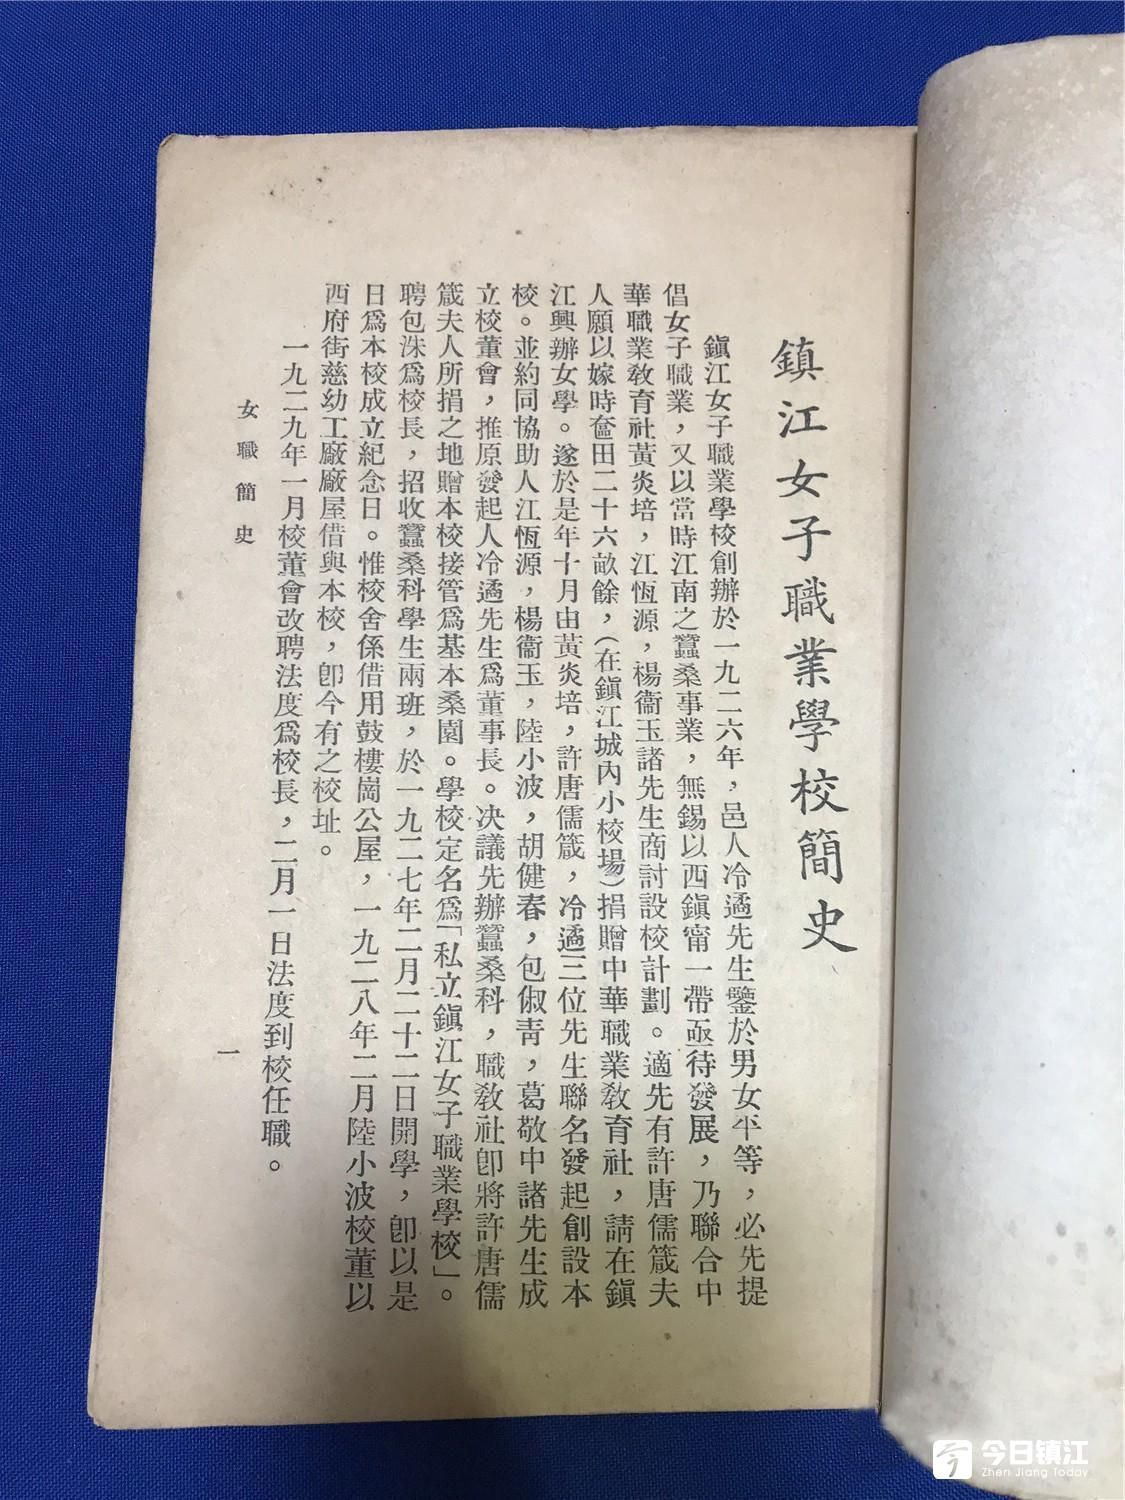 鎮江女子職業學校簡史
鎮江女子職業學校創辦於一九二六年，邑人冷遹先生鑒於男女平等，必先提
倡女子職業，又以當時江南之蠶桑事業，無錫以西鎮甯一帶亟待發展，乃聯合中
華職業教育社黃炎培，江恆源，楊衞玉諸先生商討設校計劃。適先有許唐儒箴夫
人願以嫁時奩田二十六畝餘，（在鎮江城內小校場）捐贈中華職業教育社，請在鎮
江興辦女學。遂於是年十月由黃炎培，許唐儒箴，冷遹三位先生聯名發起創設本
校。並約同協助人江恆源，楊衞玉，陸小波，胡健春，包俶青，葛敬中諸先生成
立校董會，推原發起人冷遹先生爲董事長。决議先辦蠶桑科，職敎社卽將許唐儒
箴夫人所捐之地贈本校接管爲基本桑園。學校定名爲「私立鎮江女子職業學校」。
聘包洙爲校長，招收蠶桑科學生兩班，於一九二七年二月二十二日開學，卽以是
日爲本校成立紀念日。惟校舍係借用鼓樓崗公屋，一九二八年二月陸小波校董以
西府街慈幼工廠廠屋借與本校，卽今有之校址。
一九二九年一月校董會改聘法度爲校長，二月一日法度到校任職。
女職簡史
一
今日镇江
Zhen Jiang Today